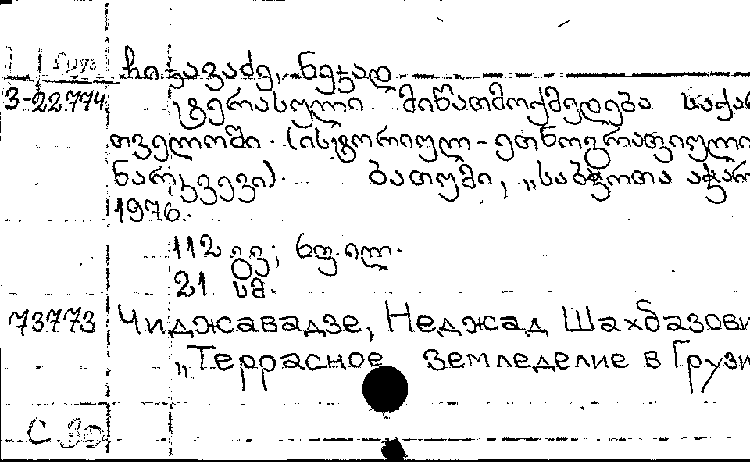 Груз ჩიჯავაძე, ნეჯად
3-22774 ტერასული მიწათმოქმედება საქარ
თველოში. (ისტორიულ-ეთნოგრაფიული
ნარკვევი). ბათუმი, „საბჭოთა აჭარ
1976.
112 გვ; 6 ფ. ილ.
21 სმ.
73773 Чиджавадзе, Неджад Шахбазови
„Террасное земледелие в Грузи
С 30